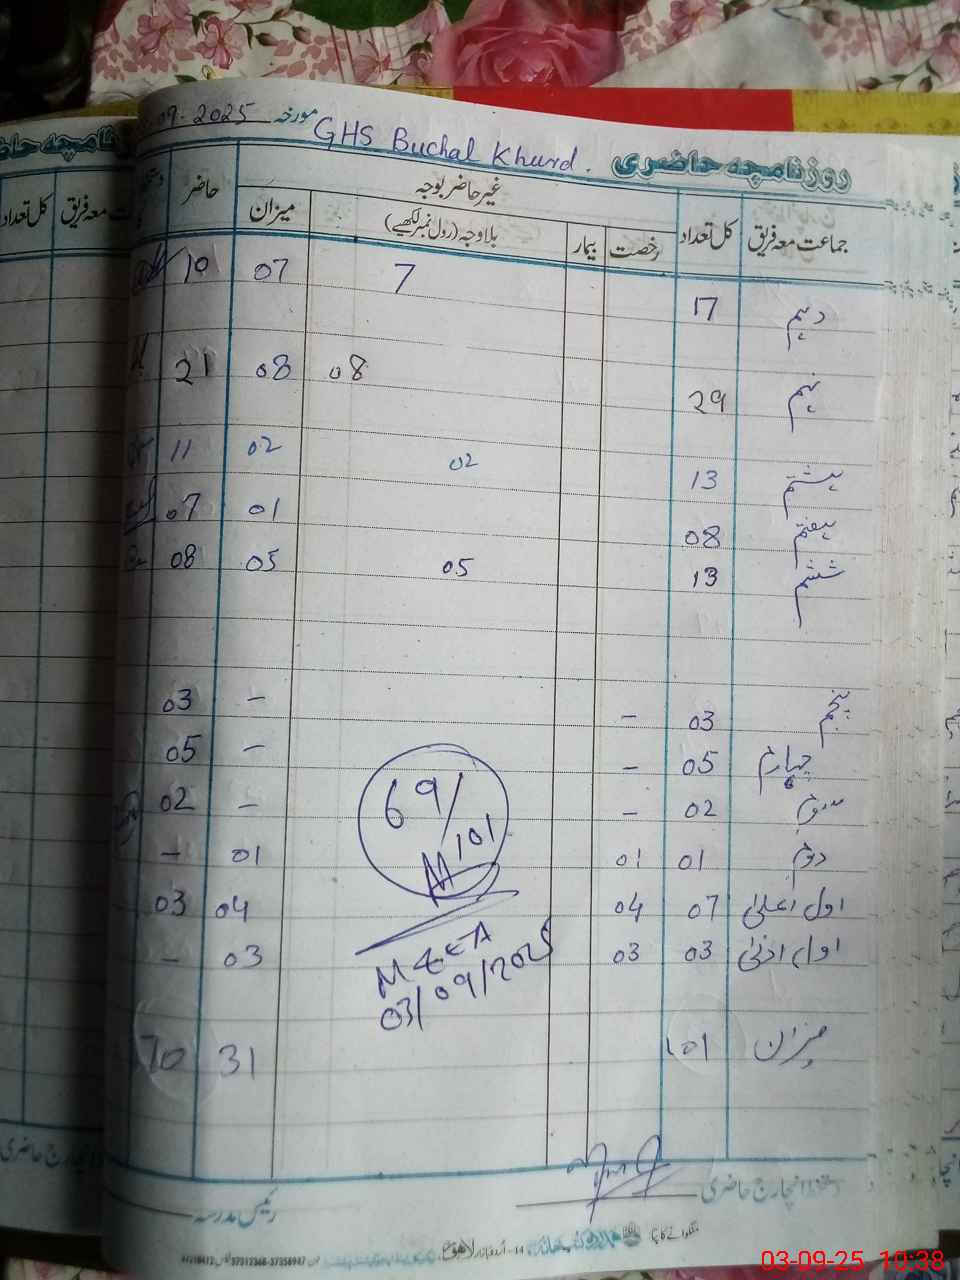 روزنامچہ حاضری GHS Buchal Khurd. مورخہ 09-2025
جماعت معہ فریق کل تعداد غیر حاضر بوجہ حاضر
رخصت بیمار بلاوجہ (رول نمبر لکھیے) میزان
دہم 17 7 07 10
نہم 29 08 08 21
ہشتم 13 02 02 11
ہفتم 08 01 07
ششم 13 05 05 08
پنجم 03 - - 03
چہارم 05 - - 05
سوئم 02 - - 02
دوئم 01 01 01 -
اول اعلیٰ 07 04 04 03
اول ادنیٰ 03 03 03 -
69/101
MEA
03/09/2025
میزان 101 31 70
انچارج حاضری
رئیس مدرسہ
کل تعداد
معہ فریق
03-09-25 10:38